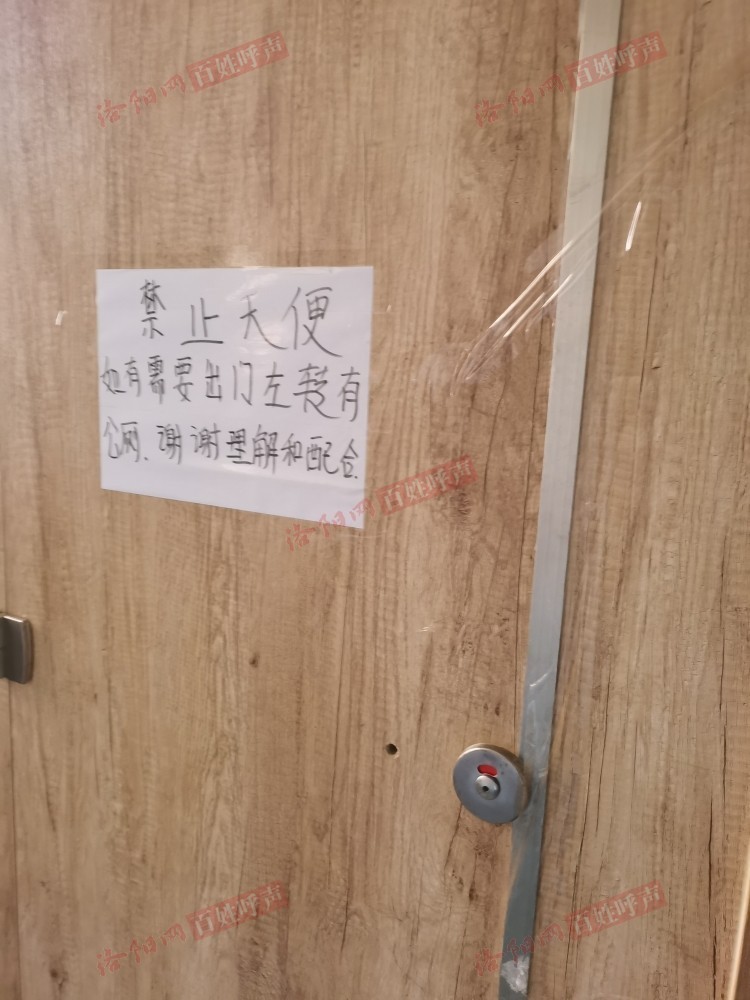 洛阳网 百姓呼声
洛阳网 百姓呼声
禁止大便
如有需要出门左转有
公厕、谢谢理解和配合.
洛阳网 百姓呼声
洛阳网 百姓呼声
洛阳网 百姓呼声